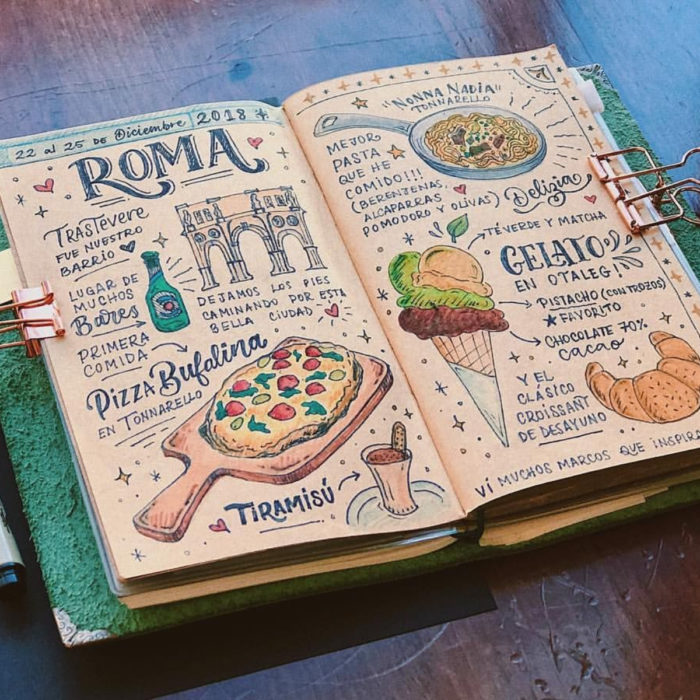 22 al 25 DE Diciembre 2018
ROMA
TRASTÉVERE
FUE NUESTRO
BARRIO
LUGAR DE
MUCHOS
Bares
PRIMERA
COMIDA
PIZZA Bufalina
EN TONNARELLO
DEJAMOS LOS PIES
CAMINANDO POR ESTA
BELLA CIUDAD
TIRAMISÚ
"NONNA NADIA"
TONNARELLO
MEJOR
PASTA
QUE HE
COMIDO!!!
(BERENJENAS,
ALCAPARRAS
POMODORO Y OLIVAS)
Delizia
TÉ VERDE Y MATCHA
GELATO
EN OTALEG!
PISTACHO (CON TROZOS)
FAVORITO
CHOCOLATE 70%
CACAO
Y EL
CLÁSICO
CROISSANT
DE DESAYUNO
VÍ MUCHOS MARCOS QUE